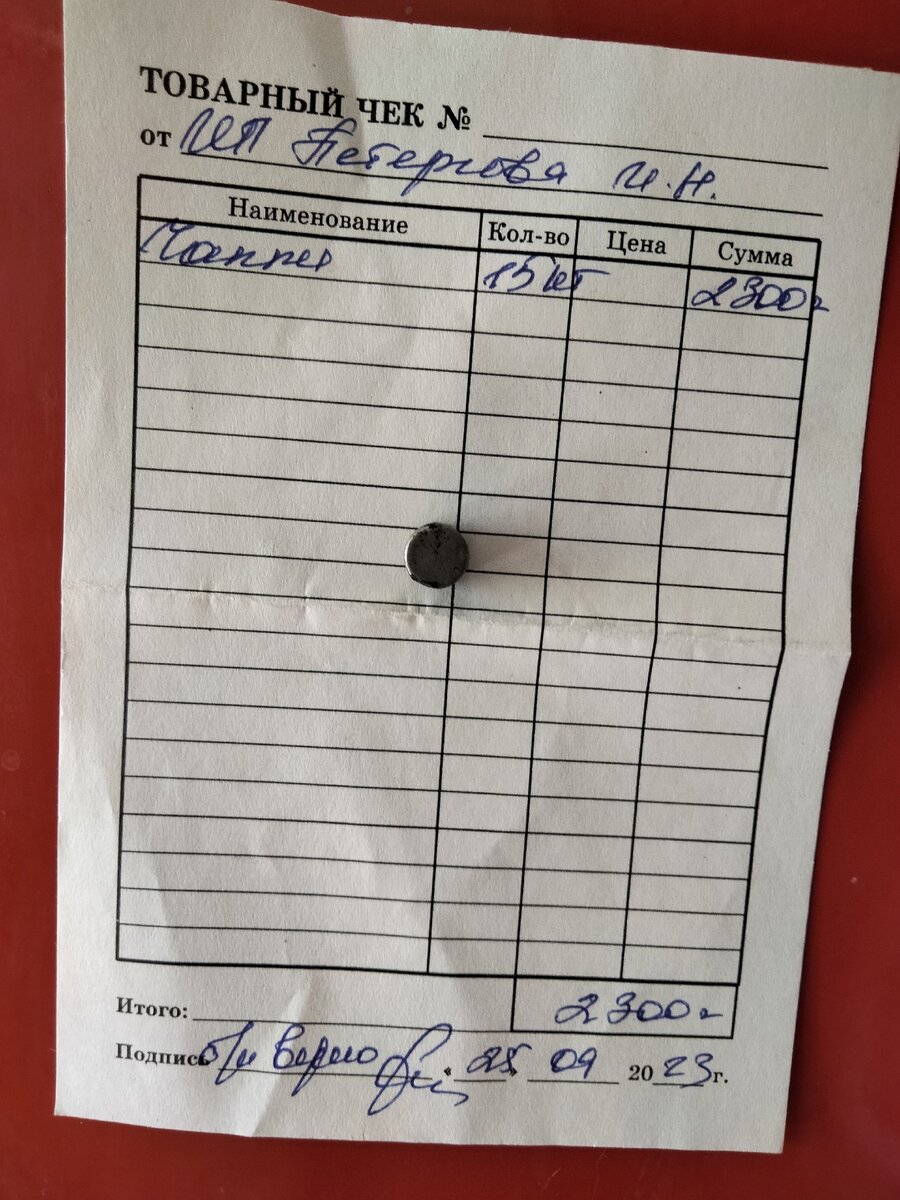 ТОВАРНЫЙ ЧЕК №
от ИП Петергова И.Н.
Наименование Кол-во Цена Сумма
Чаппи 15 кг 2300=
Итого: 2300=
Подпись б/н верно « 25 » 09 2023г.